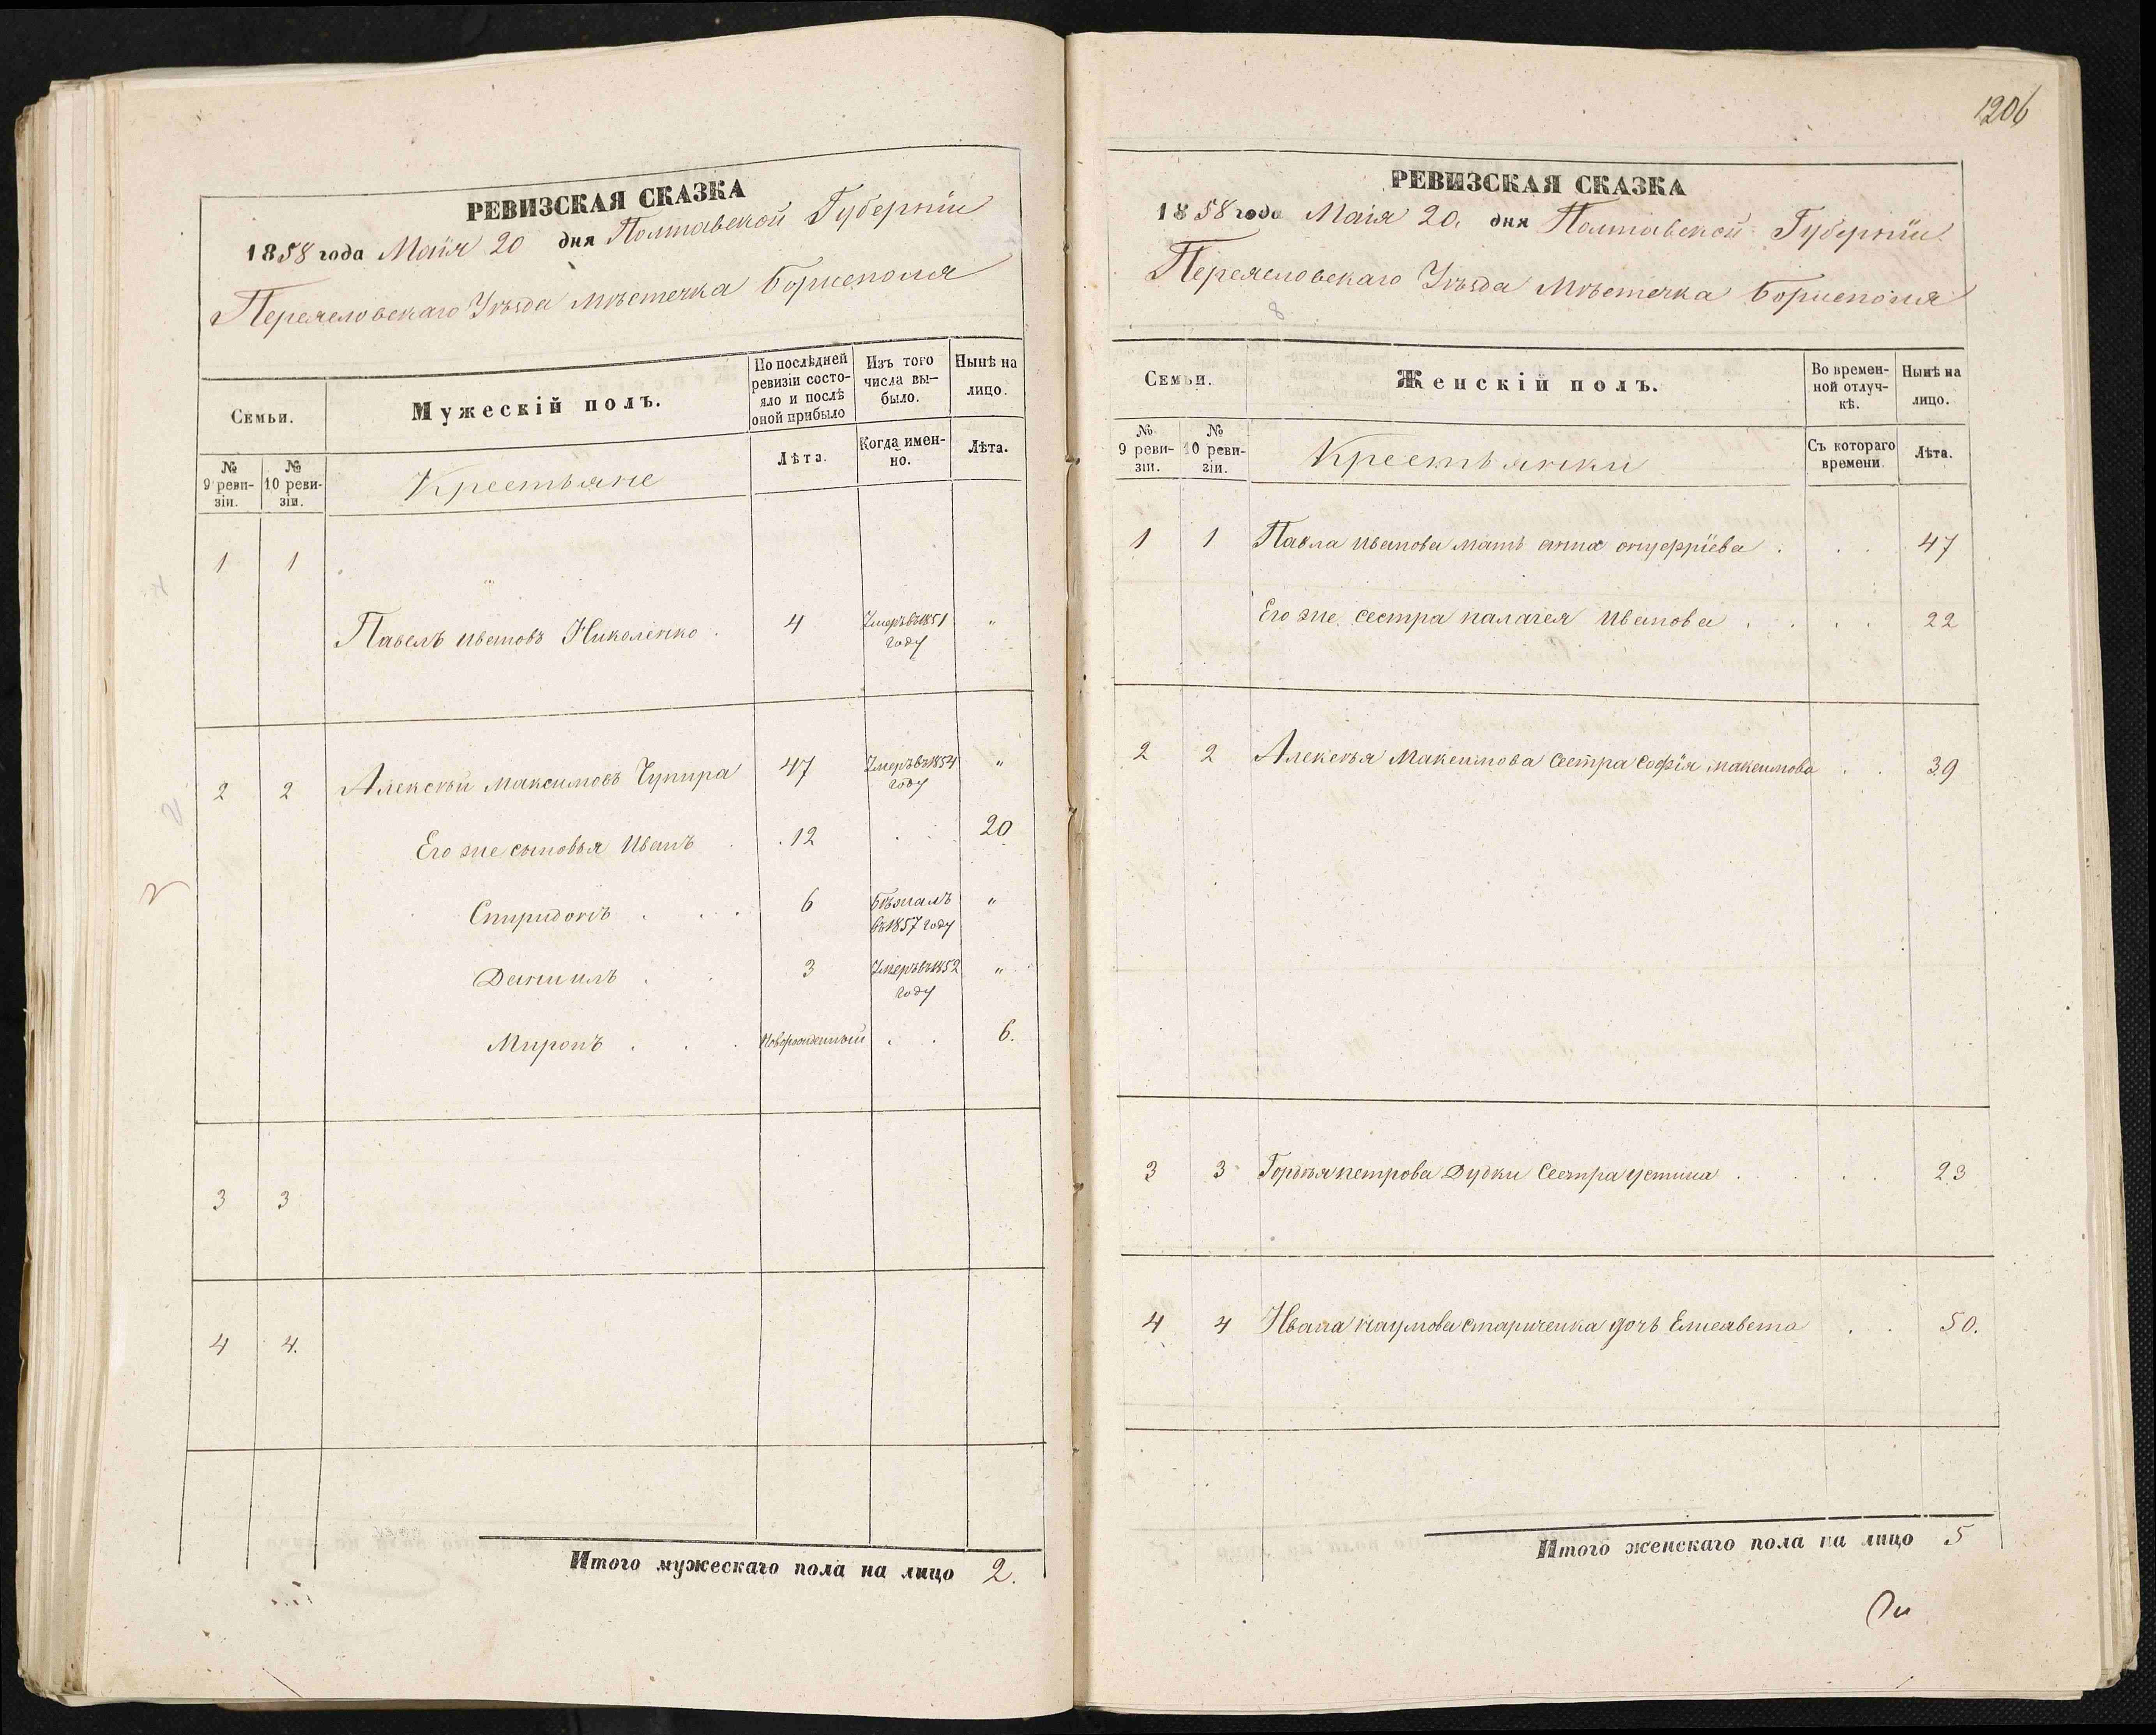 РЕВИЗСКАЯ СКАЗКА
1858 года Маія 20 дня Полтавской Губерніи
Переясловскаго Уѣзда Мѣстечка Борисполя
Семьи.
Мужескій полъ.
По послѣдней ревизіи состояло и послѣ оной прибыло
Изъ того числа выбыло.
Нынѣ на лицо.
№ 9 ревизіи.
№ 10 ревизіи.
Крестьяне
Лѣта.
Когда именно.
Лѣта.
1 1
Павелъ Ивановъ Николенко . 4 Умеръ въ 1851 году "
2 2 Алексѣй Максимовъ Чупира 47 Умеръ въ 1854 году "
Его же сыновья Иванъ . 12 . . 20
Спиридонъ . . . 6 Бѣжалъ въ 1857 году "
Данилъ . . 3 Умеръ въ 1852 году "
Миронъ . . . Новорожденный . . 6.
3 3
4 4.
Итого мужескаго пола на лицо 2.
1206
РЕВИЗСКАЯ СКАЗКА
1858 года Маія 20. дня Полтавской Губерніи
Переясловскаго Уѣзда Мѣстечка Борисполя
8
Семьи.
Женскій полъ.
Во временной отлучкѣ.
Нынѣ на лицо.
№ 9 ревизіи.
№ 10 ревизіи.
Крестьянки
Съ котораго времени
Лѣта.
1 1 Павла Иванова мать анна онуфріева . . . 47
Его же сестра палагея Иванова . . . . 22
2 2 Алексѣя Максимова сестра софія максимова . . 39
3 3 Гордѣя петрова Дудки сестра устина . . . . 23
4 4 Ивана наумова стариченка дочь Елисавета . . 50.
Итого женскаго пола на лицо 5